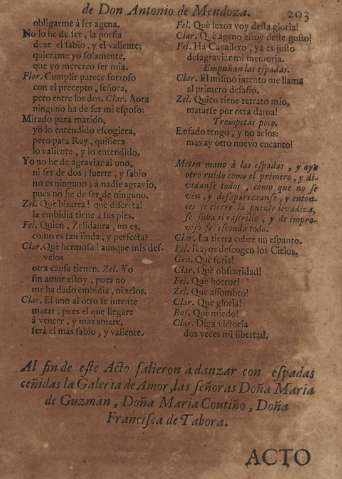 de Don Antonio de Mendoza. 203
obligarme à ser agena.
No lo he de ser, la porfia
doze el sabio, y el valiente,
quierame yo solamente,
que yo mereceré ser mia.
Flor. Cumplir parece forzoso
con el precepto, señora,
pero entre los dos. Clar. Aora
ninguno ha de ser mi esposo:
Mirado para marido,
yo lo entendido escogiera,
pero para Rey, quisiera
lo valiente, y lo entendido.
Yo no he de agraviar al uno,
ni ser de dos; fuerte, y sabio
no es ninguno; à nadie agravio,
pues no he de ser de ninguno.
Zel. Que bizarra! que discreta!
la embidia tiene à sus pies.
Fel. Quien, Zelidaura, no es,
como es tan linda, y perfecta?
Clar. Què hermosa! aunque mis des-
velos
otra causa tienen. Zel. Yo
sin amor estoy, pues no
me ha dado embidia, ni zelos.
Clar. El uno al otro se intente
matar, pues el que llegare
à vencer, y mas amare,
serà el mas sabio, y valiente.
Fel. Què lexos voy desta gloria!
Clar. Què ageno estoy deste gusto!
Fel. Ha Cavallero, ya es justo
desagraviar mi memoria.
Empuñan las espadas.
Clar. El mismo intento me llama
al primero desafio.
Zel. Quien tiene retrato mio,
matarse por otra dama!
Trompetas poco.
Enfado tengo, y no zelos:
mas ay otro nuevo encanto!
Meten mano à las espadas, y aya
otro ruido como el primero, y di-
vidanse todos, como que no se
vèn, y desaparezcanse, y enton-
ces se cierre la puente levadiza,
se suba el rastrillo, y de impro-
viso se esconda todo.
Clar. La tierra cubre un espanto.
Fel. Rayos descogen los Cielos.
Gen. Què furia!
Clar. Què obscuridad!
Fel. Què horror!
Zel. Què assombro!
Clar. Que gloria!
Ros. Què miedo!
Clar. Diga victoria
dos veces mi libertad.
Al fin de este Acto salieron a danzar con espadas
ceñidas la Galeria de Amor, las señoras Doña Maria
de Guzmàn, Doña Maria Coutiño, Doña
Francisca de Tabora.
ACTO